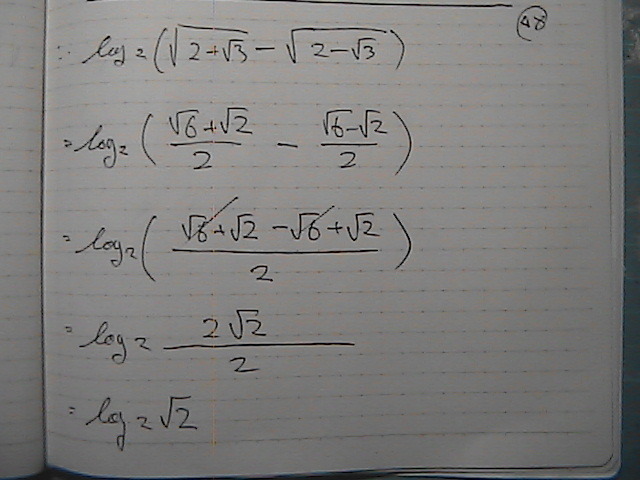 ∴ log₂(√(2+√3) − √(2−√3))
= log₂((√6+√2)/2 − (√6−√2)/2)
= log₂((√6+√2 −√6+√2)/2)
= log₂ (2√2)/2
= log₂√2